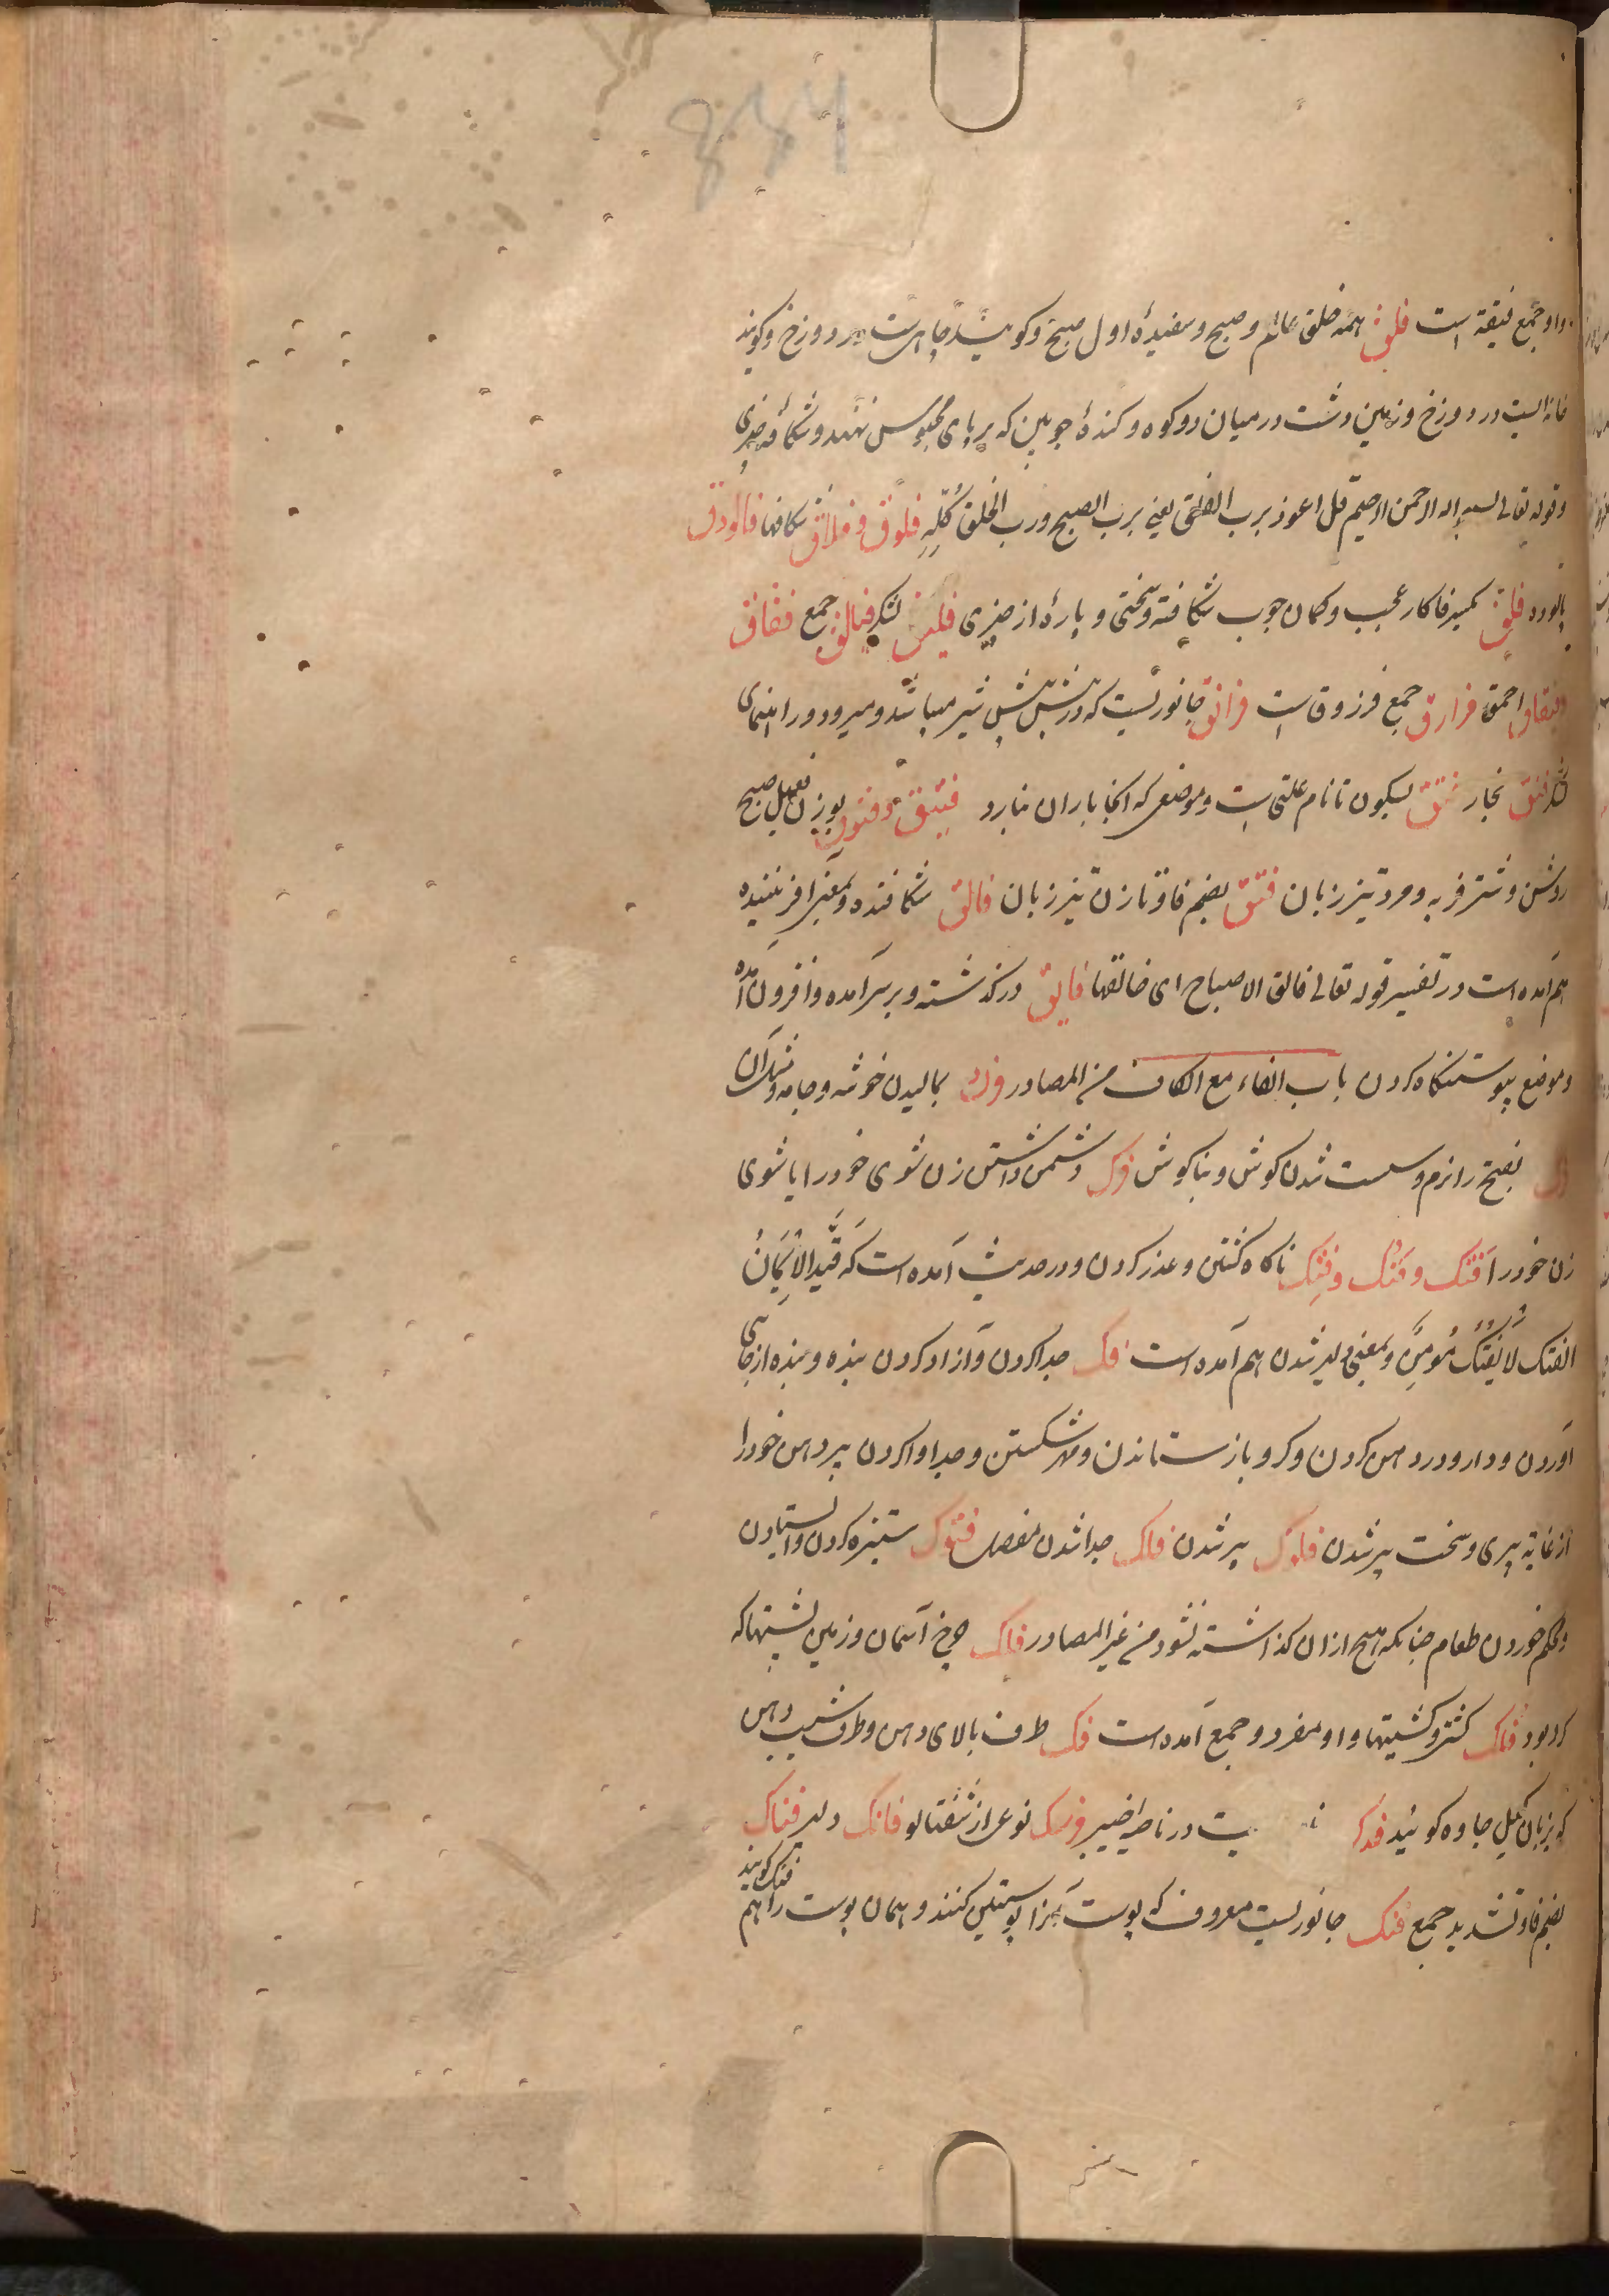 834
واو جمع فیقة است فلق همه خلق عالم و صبح و سفیدهٔ اول صبح و کویند چاهیست در دوزخ و کویند
خانه ایست در دوزخ و زمین دشت در میان دو کوه و کندهٔ چوبین که بر پای محبوس نهند و شکافه چیزی
و قوله تعالی بسم الله الرحمن الرحیم قل اعوذ برب الفلق یعنی برب الصبح و رب الخلق کُلِّهِ فلوق و فلاق شکافها فالودق
پالوده فلق بکسر فا کار عجب و کمان چوب شکافته و سختی و پارهٔ از چیزی فیلق لشکر فیالق جمع فقاق
وفقاق احمق فرارق جمع فرزوق است فرانق جانوریست که در پیش پیش شیر میباشد و میرود و راهنمای
لشکر فتق نجار فتق بسکون تا نام علتی است و موضعی که آنجا باران نبارد فتیق و فتوق بوزن فعیل صبح
روشن و شتر فربه و مرد تیز زبان فتق بضم فا و تا زن تیز زبان فالق شکافنده و بمعنی آفریننده
هم آمده است در تفسیر قوله تعالی فالق الاصباح ای خالقها فایق در کذشته و بر سر آمده و افزون آمده
و موضع پیوستنکاه کردن باب الفاء مع الکاف من المصادر فرک بمالیدن خوشه و جامه و مثل آن
فرک بفتح را نرم و سست شدن کوش و بناکوش فرک دشمن داشتن زن شوی خود را یا شوی
زن خود را فَتک و فُتک و فِتک ناکاه کشتن و عذر کردن و در حدیث آمده است که قَیَّدَ الْاِیمَانُ
الفتک لَا یَفْتِکُ مُؤمِن و بمعنی دلیر شدن هم آمده است فک جدا کردن و آزاد کردن بنده و بنده از جای
آوردن و دارو در دهن کردن و کرو باز ستاندن و مهر شکستن و جدا وا کردن پیر دهن خود را
از غایة پیری و سخت پیر شدن فکوک پیر شدن فکک جدا شدن مفصل فنوک ستیزه کردن و ایستادن
و محکم خوردن طعام چنانکه هیچ از آن کذاشته نشود من غیر المصادر فلک چرخ آسمان و زمین پشتها که
کرد بود فلک کشتی و کشتیها و او مفرد و جمع آمده است فک طرف بالای دهن و طرف شیب دهن
که بزبان کیل جاوه کویند فدک یست در ناحیه خیبر فرسک نوعی از شفتالو فاتک دلیر فتاک
بضم فا و تشدید جمع فنک جانوریست معروف که پوست آنرا پوستین کنند و همان پوست را هم
فنک کویند